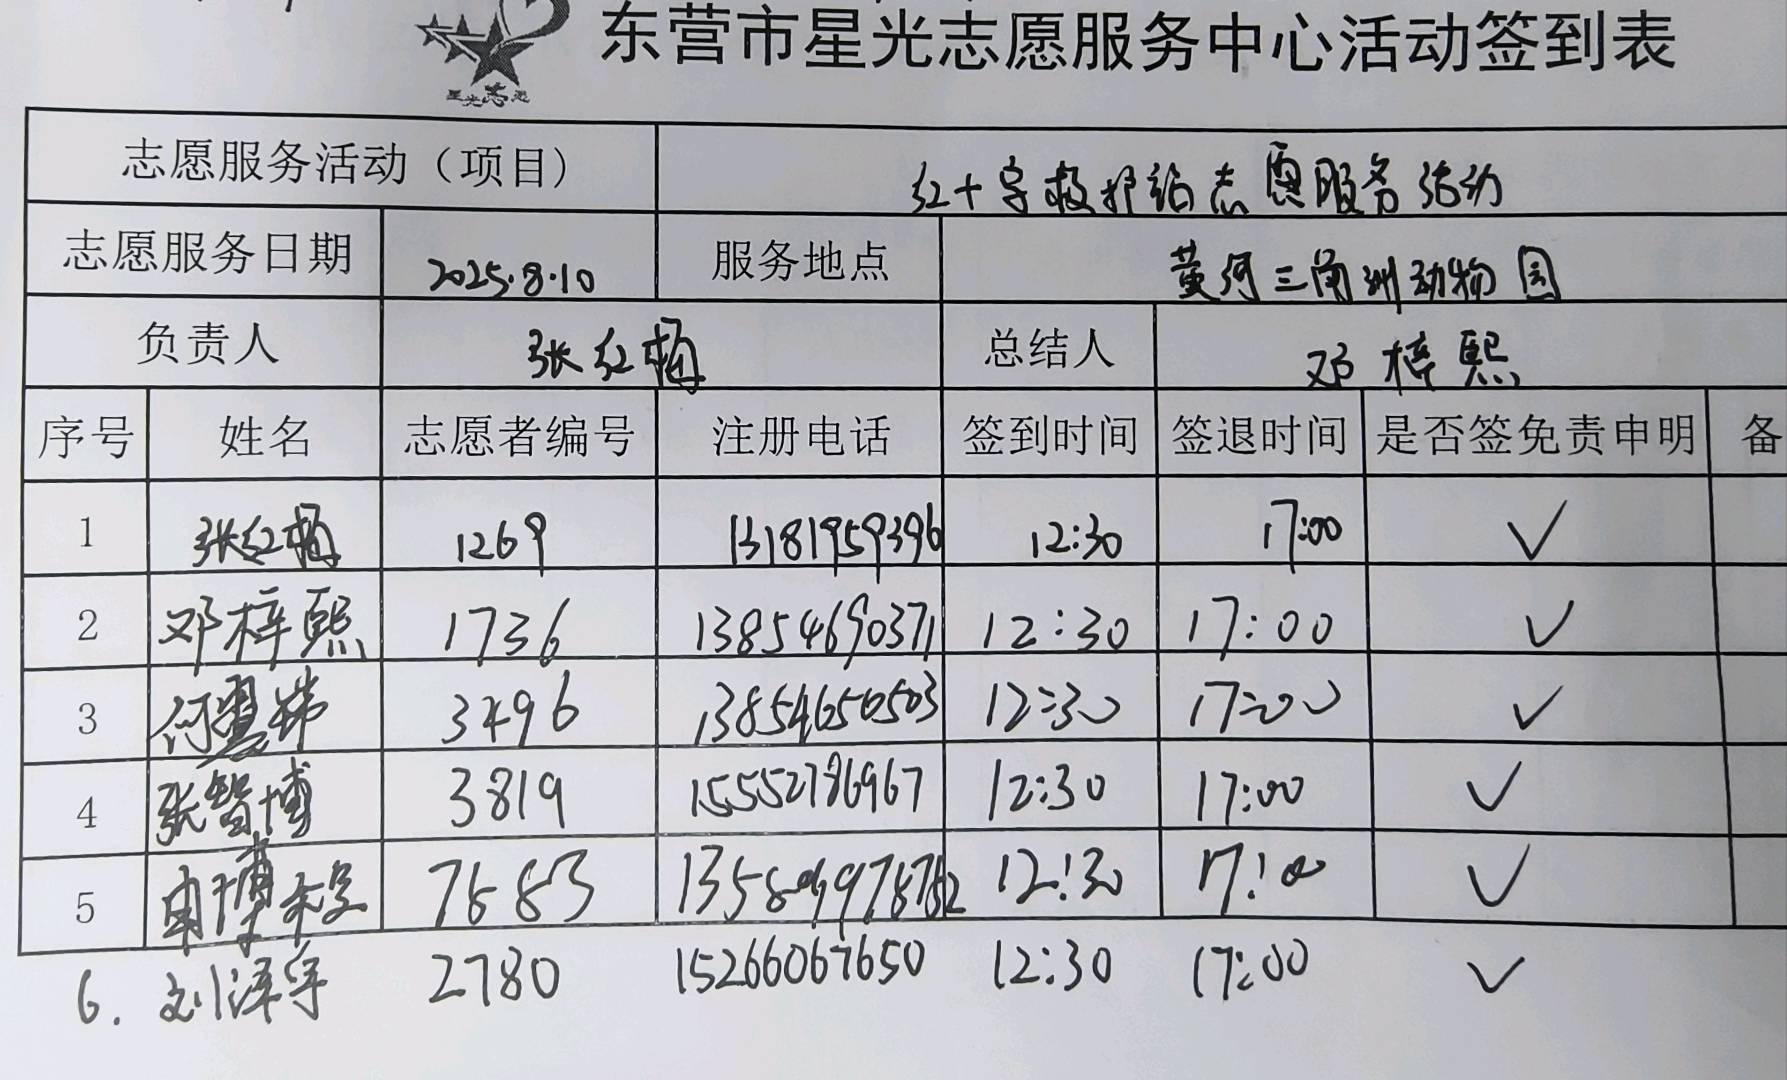 东营市星光志愿服务中心活动签到表
星光志愿
志愿服务活动（项目） 红十字救护站志愿服务活动
志愿服务日期 2025.8.10 服务地点 黄河三角洲动物园
负责人 张红梅 总结人 邓梓熙
序号 姓名 志愿者编号 注册电话 签到时间 签退时间 是否签免责申明 备
1 张红梅 1269 13181959396 12:30 17:00 ✓
2 邓梓熙 1736 13854690371 12:30 17:00 ✓
3 3496 13854650503 12:30 17:00 ✓
4 张智博 3819 15552786967 12:30 17:00 ✓
5 7683 12:30 17:00 ✓
6. 刘泽宇 2780 15266067650 12:30 17:00 ✓